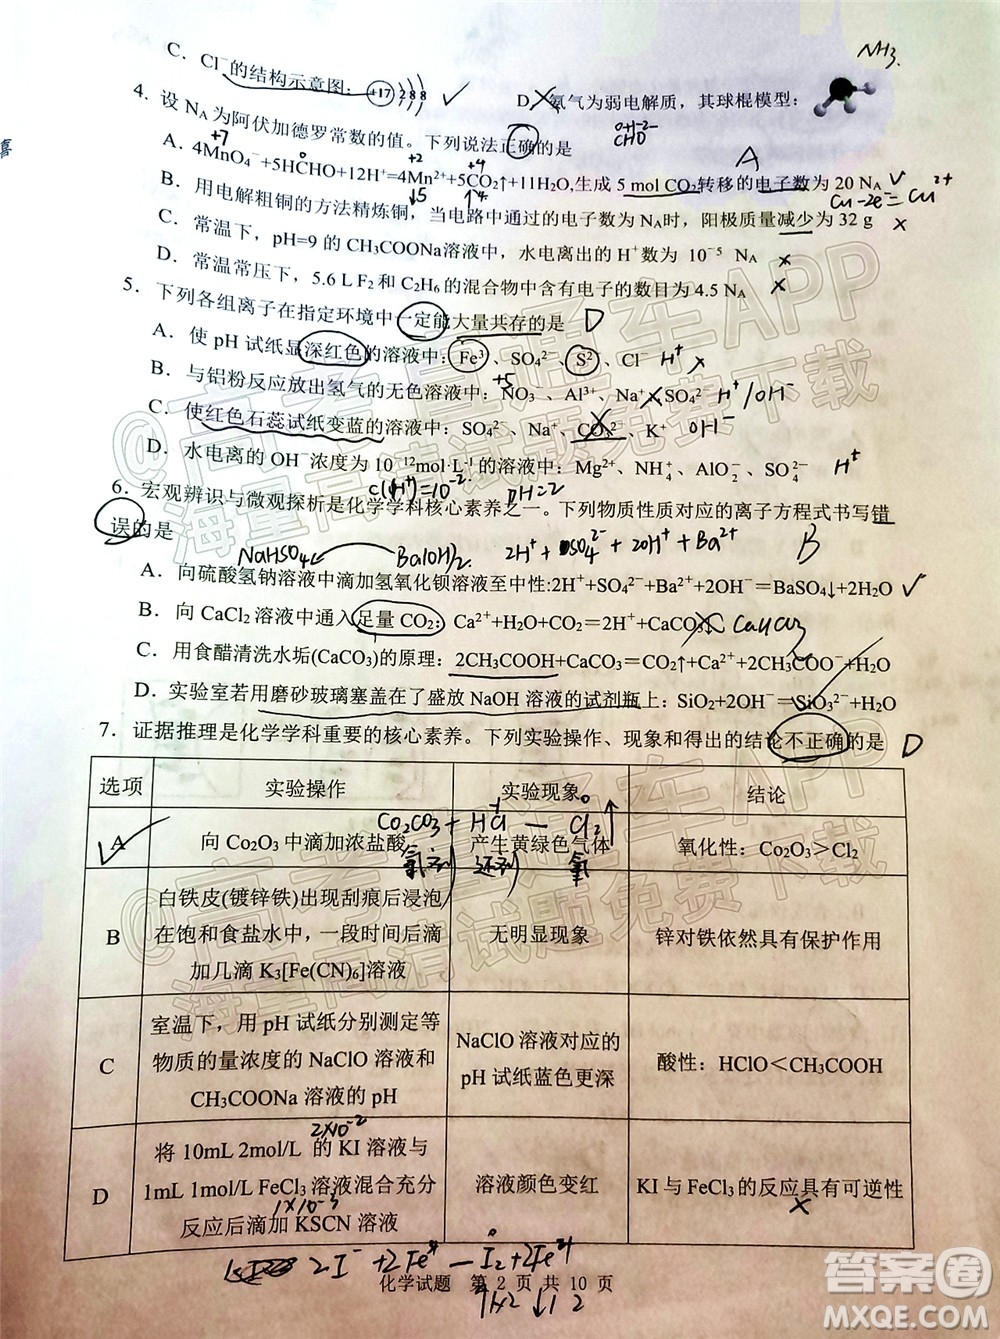 NH3.
C．Cl⁻的结构示意图：+17 2 8 8 ✓ D．氨气为弱电解质，其球棍模型：
4．设 NA 为阿伏加德罗常数的值。下列说法正确的是
+7 +2 +4 0+1-2 CHO A
A．4MnO₄⁻+5HCHO+12H⁺=4Mn²⁺+5CO₂↑+11H₂O,生成 5 mol CO₂转移的电子数为 20 NA ✓
↓5 ↑4 Cu-2e⁻=Cu²⁺
B．用电解粗铜的方法精炼铜，当电路中通过的电子数为 NA时，阳极质量减少为 32 g ×
C．常温下，pH=9 的 CH₃COONa溶液中，水电离的 H⁺数为 10⁻⁵ NA ×
D．常温常压下，5.6 L F₂和 C₂H₆的混合物中含有电子的数目为 4.5 NA ×
5．下列各组离子在指定环境中一定能大量共存的是 D
A．使 pH 试纸显深红色的溶液中：Fe³、SO₄²⁻、S²、Cl⁻ H⁺ ×
+5
B．与铝粉反应放出氢气的无色溶液中：NO₃⁻、Al³⁺、Na⁺、SO₄²⁻ H⁺/OH⁻
C．使红色石蕊试纸变蓝的溶液中：SO₄²⁻、Na⁺、CO₃²⁻、K⁺ OH⁻
D．水电离的 OH⁻浓度为 10⁻¹²mol·L⁻¹的溶液中：Mg²⁺、NH₄⁺、AlO₂⁻、SO₄²⁻ H⁺
c(H⁺)=10⁻² pH=2
6．宏观辨识与微观探析是化学学科核心素养之一。下列物质性质对应的离子方程式书写错
误的是
NaHSO₄ Ba(OH)₂ 2H⁺+SO₄²⁻+2OH⁻+Ba²⁺ B
A．向硫酸氢钠溶液中滴加氢氧化钡溶液至中性:2H⁺+SO₄²⁻+Ba²⁺+2OH⁻＝BaSO₄↓+2H₂O ✓
B．向 CaCl₂溶液中通入足量 CO₂：Ca²⁺+H₂O+CO₂＝2H⁺+CaCO₃↓
C．用食醋清洗水垢(CaCO₃)的原理：2CH₃COOH+CaCO₃＝CO₂↑+Ca²⁺+2CH₃COO⁻+H₂O
D．实验室若用磨砂玻璃塞盖在了盛放 NaOH 溶液的试剂瓶上：SiO₂+2OH⁻＝SiO₃²⁻+H₂O
7．证据推理是化学学科重要的核心素养。下列实验操作、现象和得出的结论不正确的是 D
选项 实验操作 实验现象 结论
Co₂CO₃ + HCl — Cl₂↑
A 向 Co₂O₃ 中滴加浓盐酸 产生黄绿色气体 氧化性：Co₂O₃＞Cl₂
B 白铁皮(镀锌铁)出现刮痕后浸泡
在饱和食盐水中，一段时间后滴
加几滴 K₃[Fe(CN)₆]溶液 无明显现象 锌对铁依然具有保护作用
C 室温下，用 pH 试纸分别测定等
物质的量浓度的 NaClO 溶液和
CH₃COONa 溶液的 pH NaClO 溶液对应的
pH 试纸蓝色更深 酸性：HClO＜CH₃COOH
2×10⁻²
D 将 10mL 2mol/L 的 KI 溶液与
1mL 1mol/L FeCl₃溶液混合充分
反应后滴加 KSCN 溶液 溶液颜色变红 KI 与 FeCl₃的反应具有可逆性
1×10⁻³ ×
2I⁻+2Fe³⁺—I₂+2Fe²⁺
化学试题 第 2 页 共 10 页
@高考直通车APP
海量高清试题免费下载
@高考直通车APP
海量高清试题免费下载
答案圈
MXQE.COM